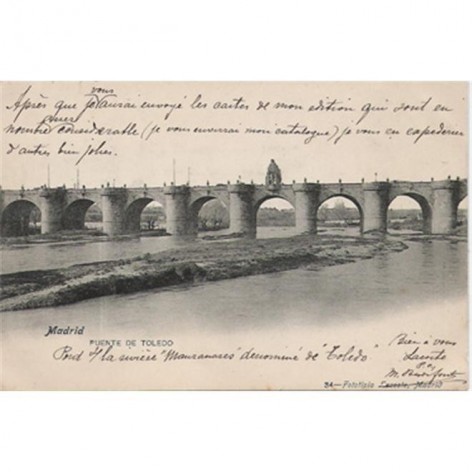 vous
Après que j'aurai envoyé les cartes de mon edition qui sont en
nombre assez considerable (je vous enverrai mon catalogue) je vous en
d'autres bien jolies.
Madrid
PUENTE DE TOLEDO
Pont s/ la rivière "Manzanares" denominé de "Toledo"
Bien à vous
24.—Fototipia Madrid